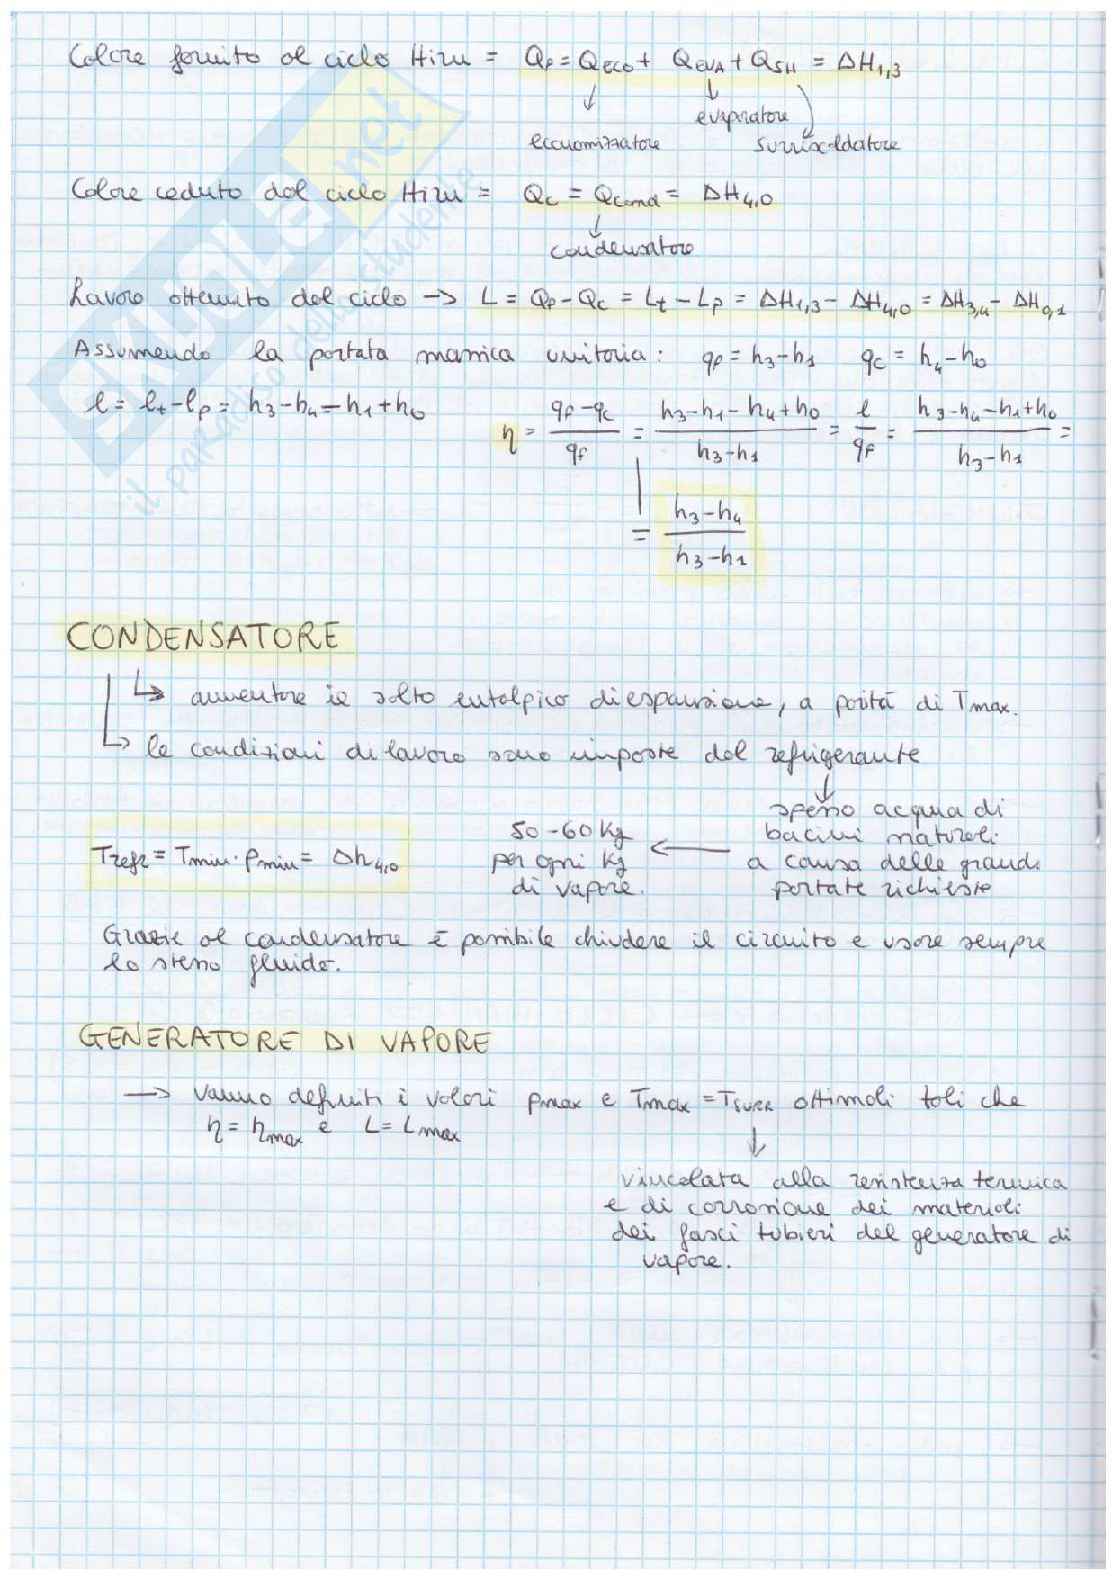 Calore fornito al ciclo Hirn = Qf = QECO + QEVA + QSH = ΔH1,3
evaporatore
economizzatore surriscaldatore
Calore ceduto dal ciclo Hirn = Qc = Qcond = ΔH4,0
condensatore
Lavoro ottenuto dal ciclo → L = Qf - Qc = Lt - Lp = ΔH1,3 - ΔH4,0 = ΔH3,4 - ΔH0,1
Assumendo la portata massica unitaria: qf = h3 - h1 qc = h4 - h0
l = lt - lp = h3 - h4 - h1 + h0
η = (qf - qc)/qf = (h3 - h1 - h4 + h0)/(h3 - h1) = l/qf = (h3 - h4 - h1 + h0)/(h3 - h1) =
= (h3 - h4)/(h3 - h1)
CONDENSATORE
↳ aumentare il salto entalpico di espansione, a parità di Tmax.
↳ le condizioni di lavoro sono imposte dal refrigerante
↓
spesso acqua di
bacini naturali
a causa delle grandi
portate richieste
←
50-60 kg
per ogni kg
di vapore.
Trefr = Tmin · pmin = Δh4,0
Grazie al condensatore è possibile chiudere il circuito e usare sempre
lo stesso fluido.
GENERATORE DI VAPORE
→ vanno definiti i valori pmax e Tmax = TSURR ottimali tali che
η = ηmax e L = Lmax
↓
vincolata alla resistenza termica
e di corrosione dei materiali
dei fasci tubieri del generatore di
vapore.
SKUOLA.net
il paradiso dello studente